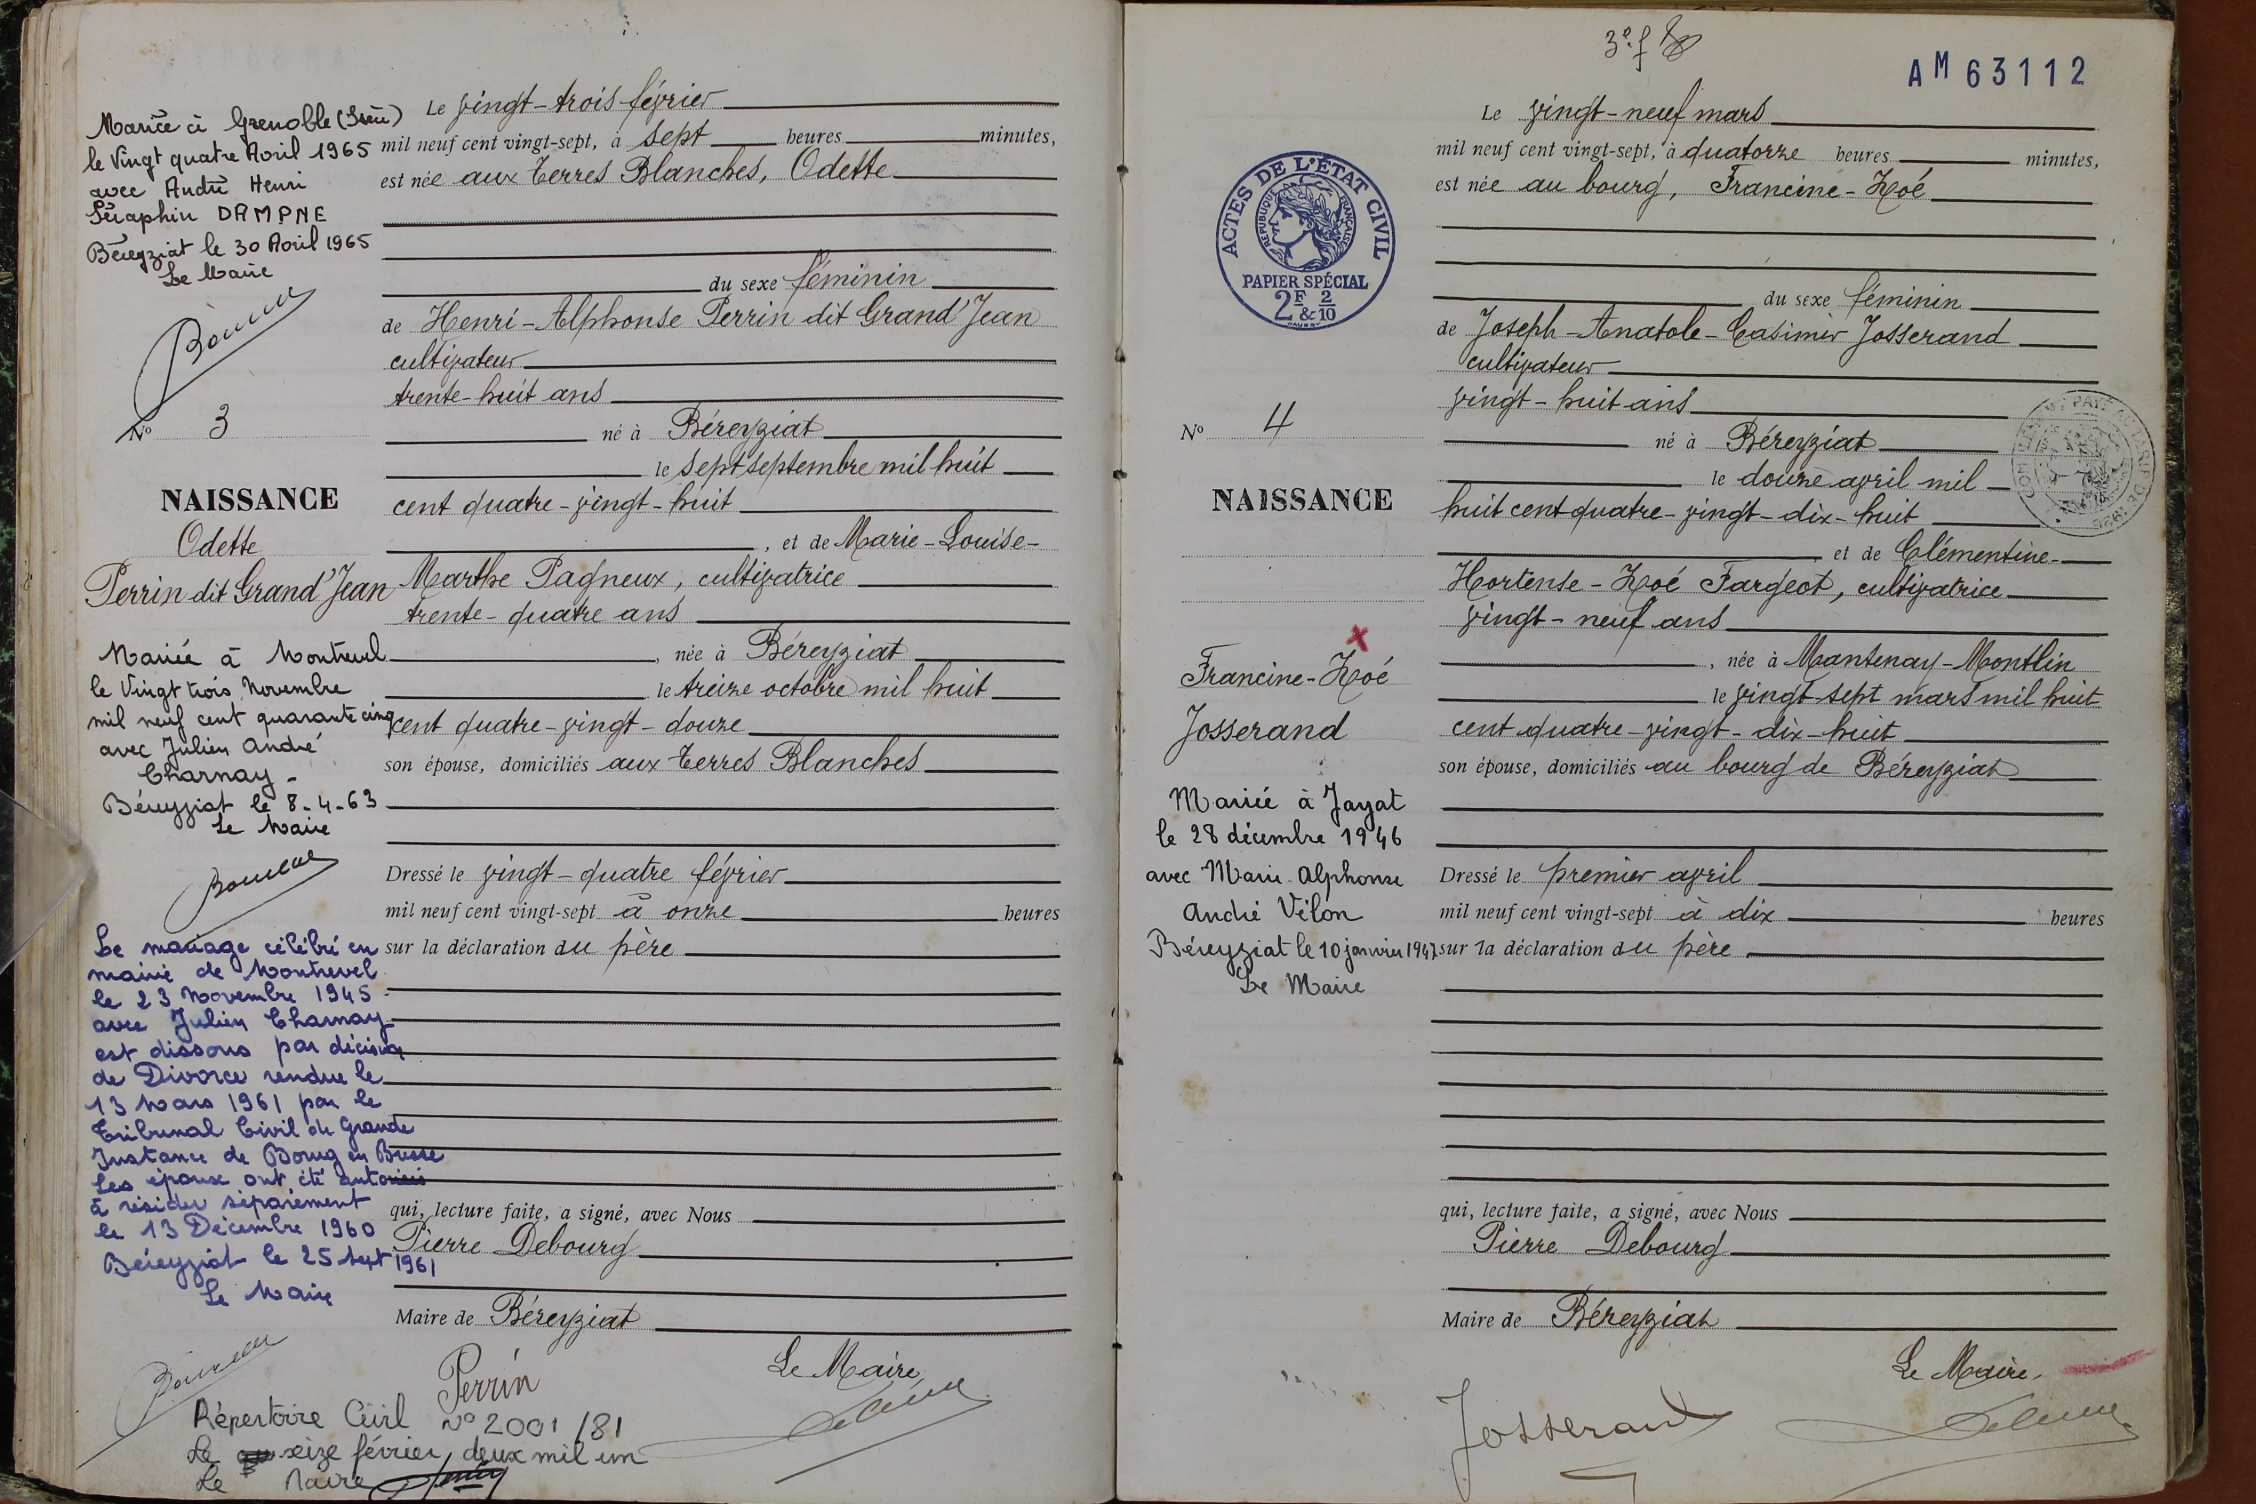 Mariée à Grenoble (Isère)
le Vingt quatre Avril 1965
avec André Henri
Séraphin DAMPNE
Béreyziat le 30 Avril 1965
Le Maire
N° 3
NAISSANCE
Odette
Perrin dit Grand'Jean
Mariée à Montrevel
le Vingt trois Novembre
mil neuf cent quarante cinq
avec Julien André
Charnay -
Béreyziat le 8-4-63
Le Maire
Le mariage célébré en
mairie de Montrevel
le 23 Novembre 1945
avec Julien Charnay
est dissous par décision
de Divorce rendue le
13 Mars 1961 par le
Tribunal Civil de Grande
Instance de Bourg en Bresse
Les époux ont été autorisés
à résider séparément
le 13 Décembre 1960
Béreyziat le 25 Sept 1961
Le Maire
Le vingt-trois février
mil neuf cent vingt-sept, à sept heures minutes,
est née aux Terres Blanches, Odette
du sexe féminin
de Henri-Alphonse Perrin dit Grand'Jean
cultivateur
trente-huit ans
né à Béreyziat
le sept septembre mil huit
cent quatre-vingt-huit
, et de Marie-Louise-
Marthe Pagneux, cultivatrice
trente-quatre ans
, née à Béreyziat
le treize octobre mil huit
cent quatre-vingt-douze
son épouse, domiciliés aux Terres Blanches
Dressé le vingt-quatre février
mil neuf cent vingt-sept à onze heures
sur la déclaration du père
qui, lecture faite, a signé, avec Nous
Pierre Debourg
Maire de Béreyziat
Perrin
Le Maire,
Répertoire Civil N° 2001/81
Le seize février deux mil un
Le Maire
3e f
AM 63112
ACTES DE L'ÉTAT CIVIL
RÉPUBLIQUE FRANÇAISE
PAPIER SPÉCIAL
2F & 2/10
N° 4
NAISSANCE
Francine-Zoé
Josserand
Mariée à Jayat
le 28 décembre 1946
avec Marie Alphonse
André Vélon
Béreyziat le 10 janvier 1947
Le Maire
Le vingt-neuf mars
mil neuf cent vingt-sept, à quatorze heures minutes,
est née au bourg, Francine-Zoé
du sexe féminin
de Joseph-Anatole-Casimir Josserand
cultivateur
vingt-huit ans
né à Béreyziat
le douze avril mil
huit cent quatre-vingt-dix-huit
et de Clémentine-
Hortense-Zoé Fargeot, cultivatrice
vingt-neuf ans
, née à Mantenay-Montlin
le vingt-sept mars mil huit
cent quatre-vingt-dix-huit
son épouse, domiciliés au bourg de Béreyziat
Dressé le premier avril
mil neuf cent vingt-sept à dix heures
sur la déclaration du père
qui, lecture faite, a signé, avec Nous
Pierre Debourg
Maire de Béreyziat
Le Maire,
Josserand